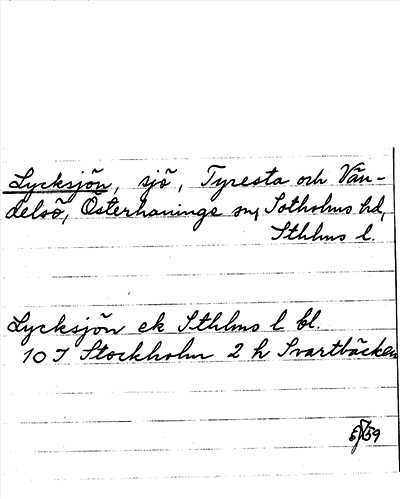 Lycksjön, sjö, Tyresta och Vän-
delsö, Österhaninge sn, Sotholms hd,
Sthlms l.
Lycksjön ek Sthlms l bl.
10 I Stockholm 2 h Svartbäcken
59